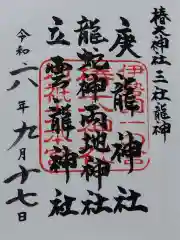 椿大神社 三社龍神
庚龍神社
龍蛇神両地神社
立雲龍神社
令和六年九月十七日